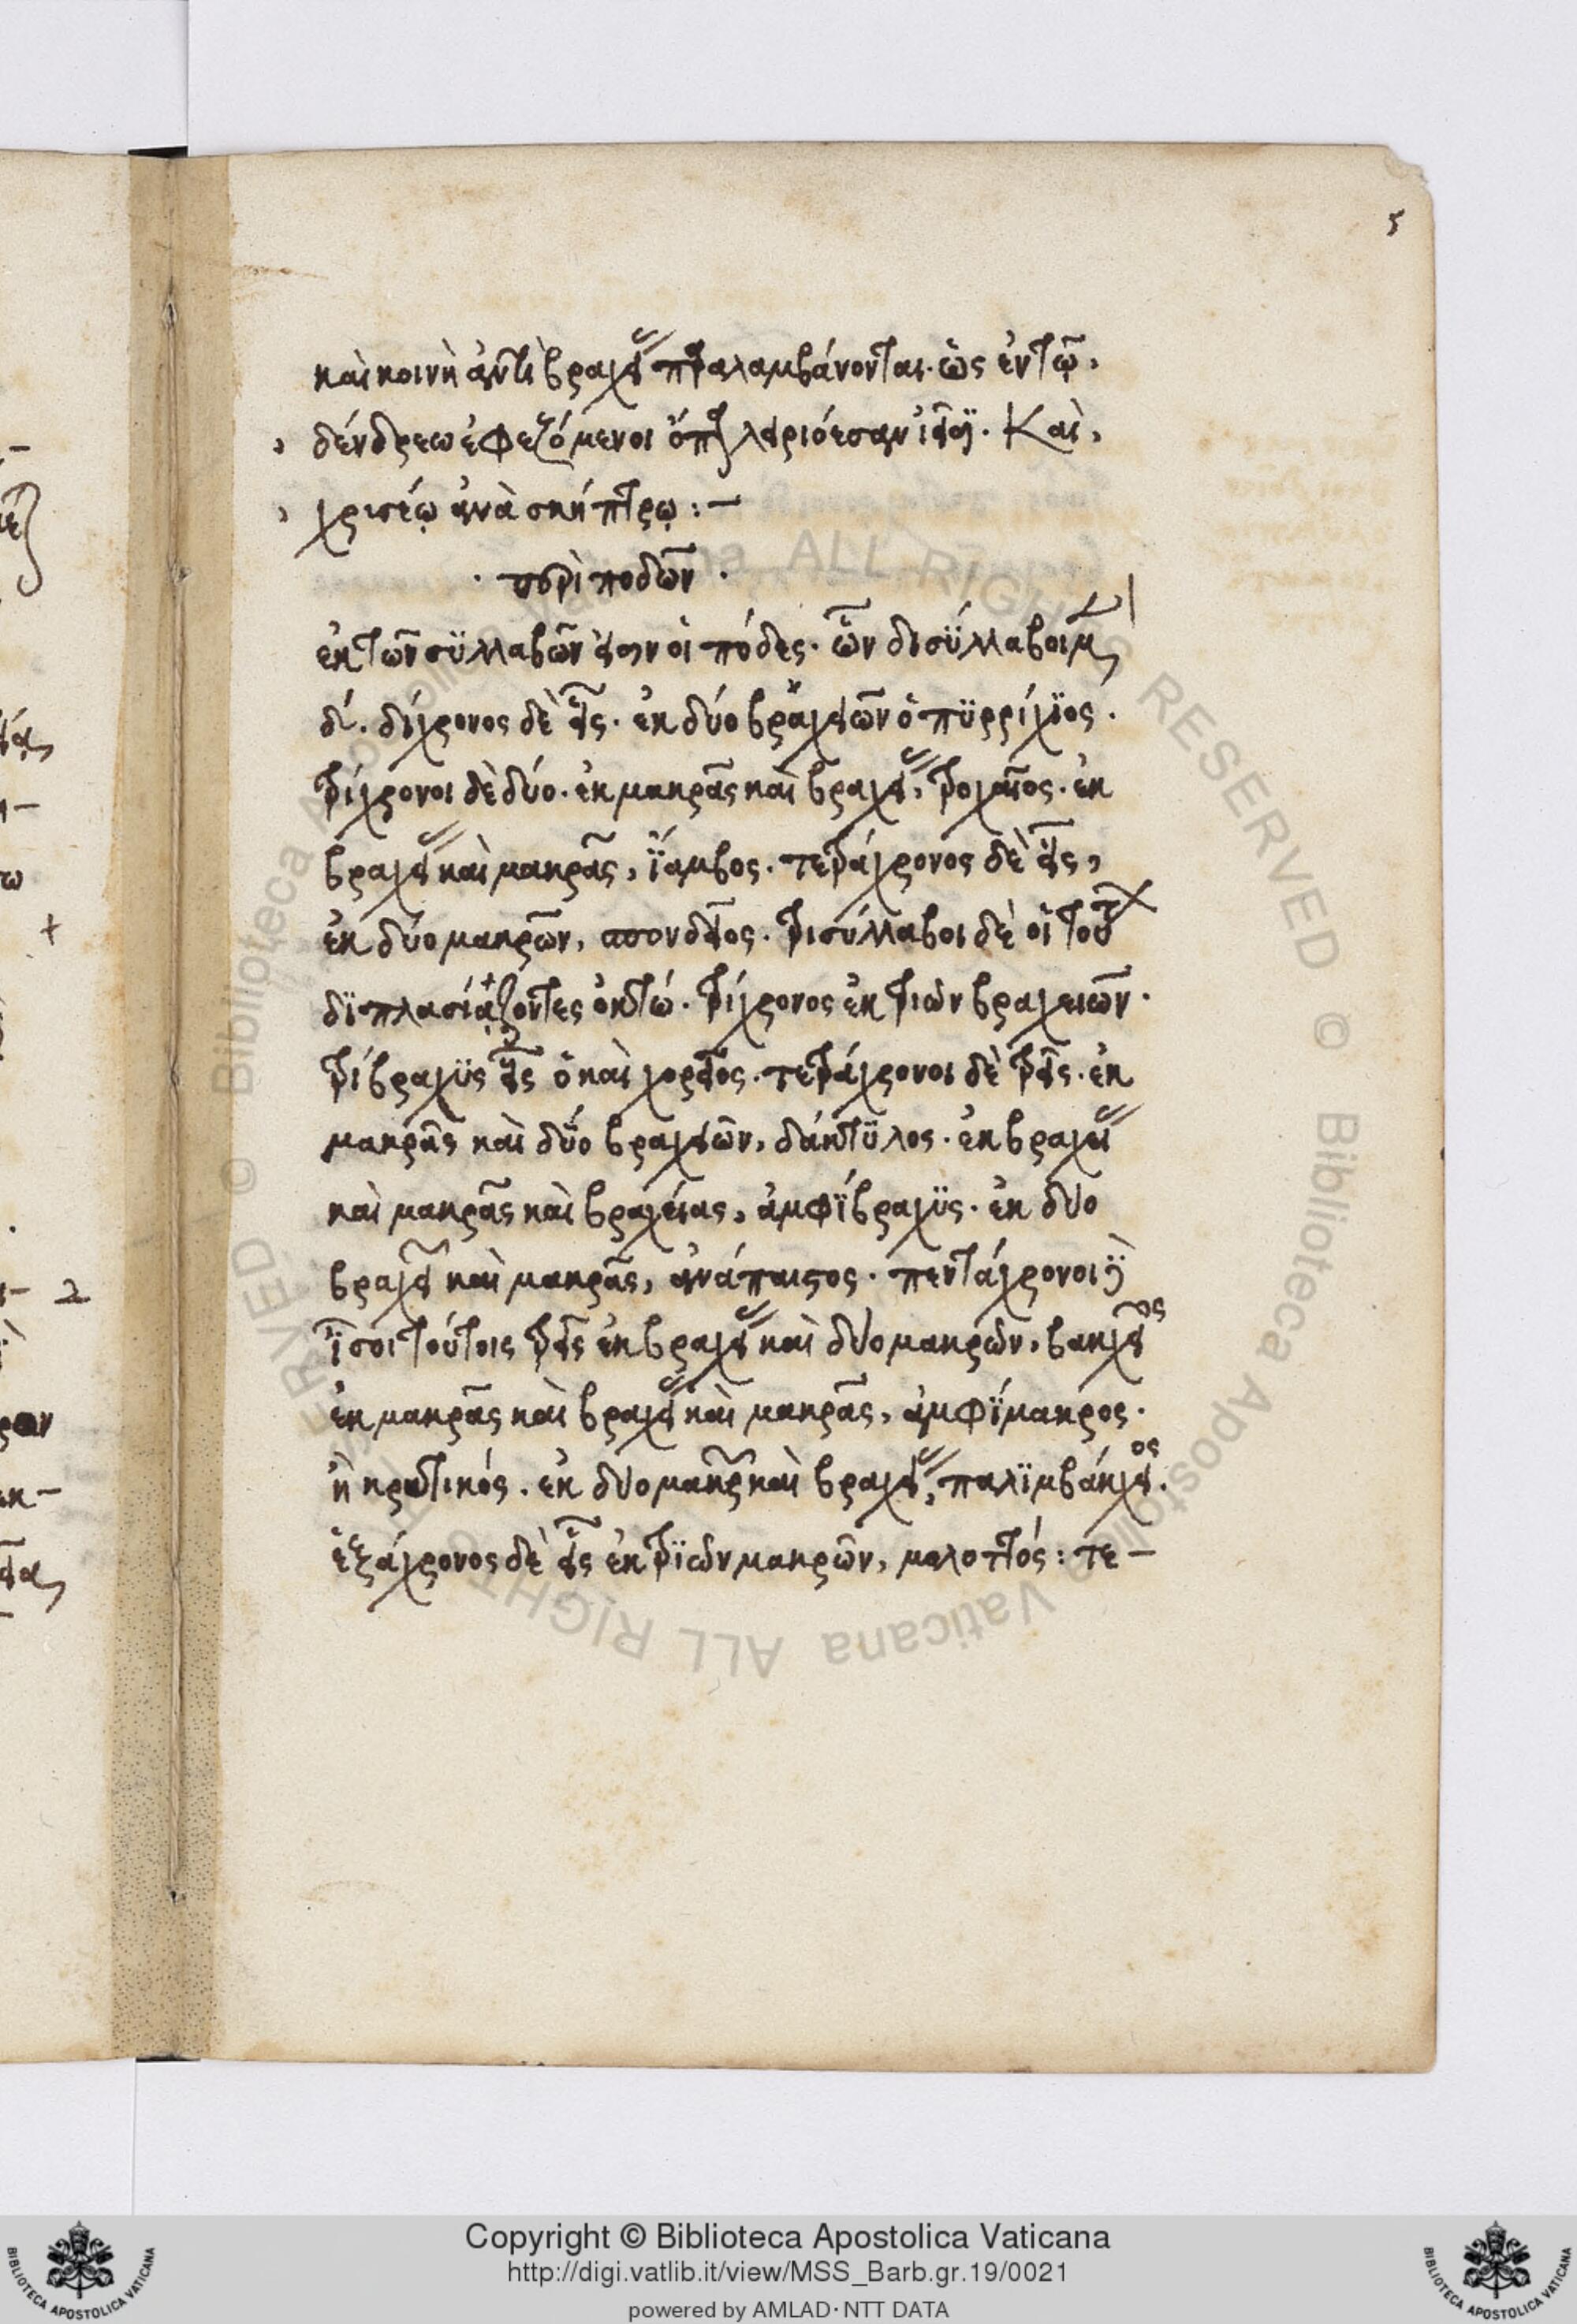 5
καὶ κοινὴ ἀντὶ βραχείας παραλαμβάνονται. ὡς ἐν τῷ,
δένδρεω ἐφεζόμενοι ὄπα λειριόεσσαν ἱεῖσι. Καὶ,
χρυσέῳ ἀνὰ σκήπτρῳ :-
· περὶ ποδῶν ·
ἐκ τῶν συλλαβῶν εἰσὶν οἱ πόδες. ὧν δισύλλαβοι μὲν
δ΄. δίχρονος δὲ εἷς. ἐκ δύο βραχειῶν ὁ πϋρρίχϊος.
τρίχρονοι δὲ δύο. ἐκ μακρᾶς καὶ βραχείας, τροχαῖος. ἐκ
βραχείας καὶ μακρᾶς, ἴαμβος. τετράχρονος δὲ εἷς,
ἐκ δύο μακρῶν, σπονδεῖος. τρισύλλαβοι δὲ οἱ τούτων
δϊπλασιάζοντες ὀκτώ. τρίχρονος ἐκ τριῶν βραχειῶν.
τρίβραχϋς εἷς ὁ καὶ χορεῖος. τετράχρονοι δὲ τρεῖς. ἐκ
μακρᾶς καὶ δύο βραχειῶν, δάκτϋλος. ἐκ βραχείας
καὶ μακρᾶς καὶ βραχείας, ἀμφΐβραχϋς. ἐκ δύο
βραχειῶν καὶ μακρᾶς, ἀνάπαιστος. πεντάχρονοι
ἴσοι τούτοις τρεῖς ἐκ βραχείας καὶ δύο μακρῶν, βακχεῖος
ἐκ μακρᾶς καὶ βραχείας καὶ μακρᾶς, ἀμφΐμακρος.
ἢ κρητικός. ἐκ δύο μακρῶν καὶ βραχείας, παλϊμβάκχειος.
ἑξάχρονος δὲ εἷς ἐκ τρϊῶν μακρῶν, μολοττός : τε-
Copyright © Biblioteca Apostolica Vaticana
http://digi.vatlib.it/view/MSS_Barb.gr.19/0021
powered by AMLAD·NTT DATA